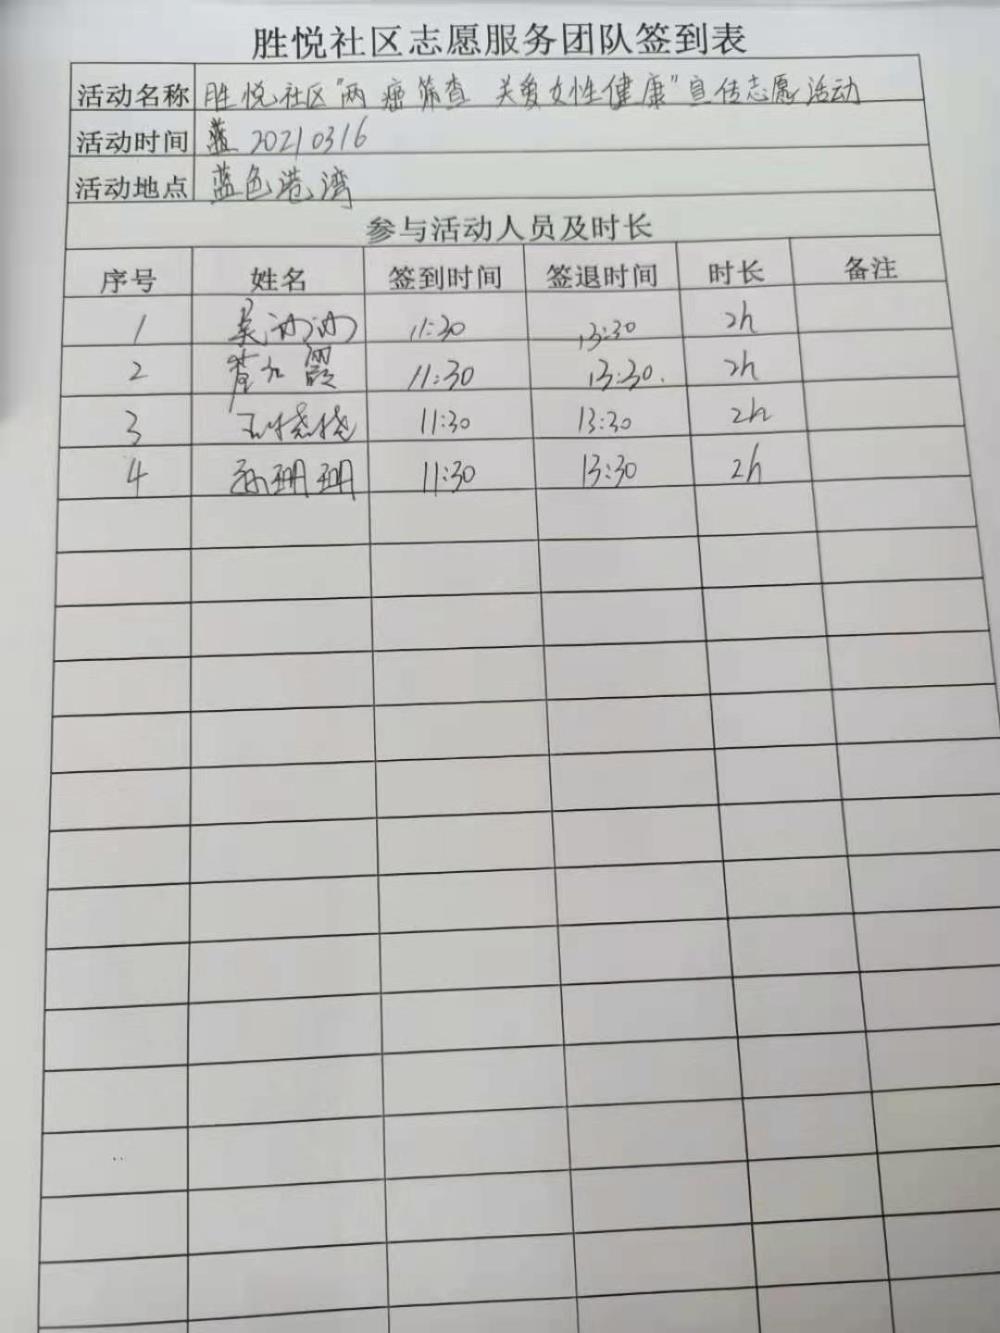 胜悦社区志愿服务团队签到表
活动名称 胜悦社区"两癌筛查 关爱女性健康"宣传志愿活动
活动时间 20210316
活动地点 蓝色港湾
参与活动人员及时长
序号 姓名 签到时间 签退时间 时长 备注
1 吴 11:30 13:30 2h
2 霞 11:30 13:30. 2h
3 11:30 13:30 2h
4 孙珊珊 11:30 13:30 2h